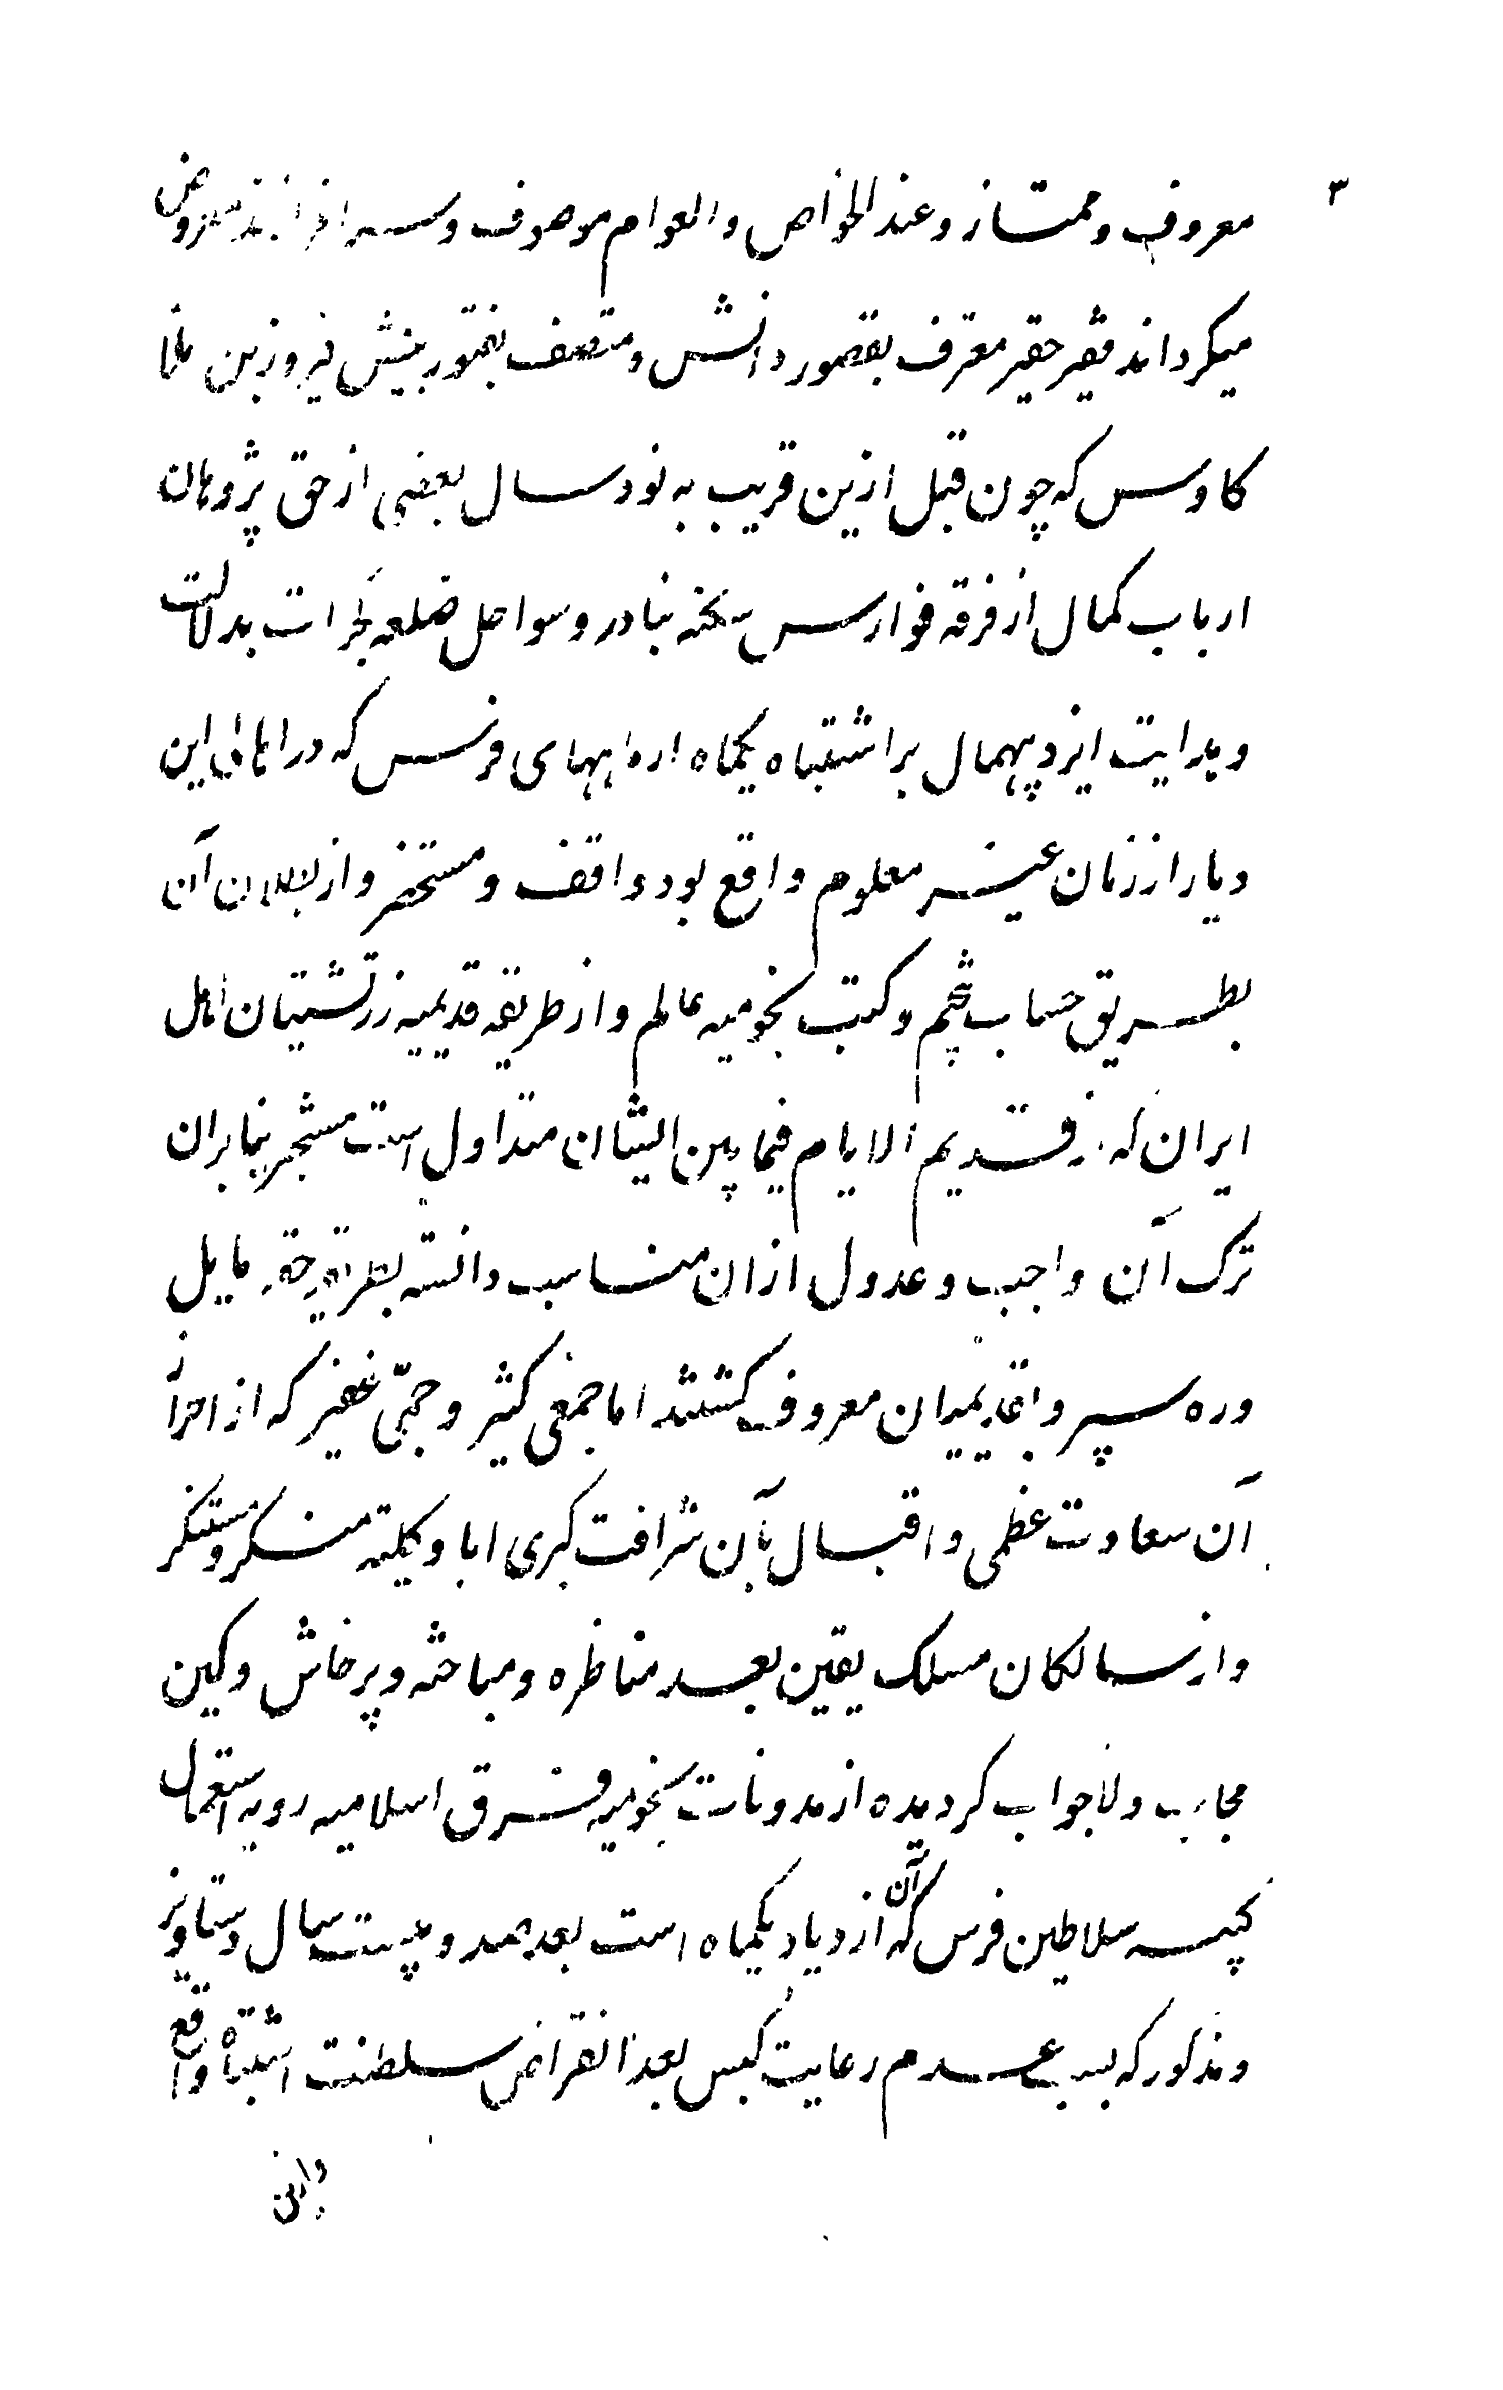 ۳
معروف و ممتاز و عند الخواص و العوام موصوف و سرافراز اند معروض
میکرداند فقیر حقیر معترف بقصور دانش و متصف بفتور بینش فیروز بن ملا
کاوس که چون قبل ازین قریب به نود سال بعضی از حق پژوهان
ارباب کمال از فرقه فوارس سکنه بنادر و سواحل ضلعه کجرات بدلالت
و هدایت ایزد بیهمال بر اشتباه یکماه از ماههای فرس که در اهالی این
دیار از زمان غیر معلوم واقع بود واقف و مستحضر و از بطلان آن
بطریق حساب تنجم و کتب نجومیه عالم و از طریقه قدیمیه زرتشتیان اهل
ایران که از قدیم الایام فیما بین ایشان متداول است مشتهر بنابران
ترک آن واجب و عدول ازان مناسب دانسته بطریقه حقه مایل
و ره سپر و بقدیمیان معروف کشتند اما جمعی کثیر و جمّی غفیر که از احراز
آن سعادت عظمی و اقبال بآن شرافت کبری ابا و بکلیه منکر و مستنکر
و از سالکان مسلک یقین بعد مناظره و مباحثه و پرخاش و کین
مجاب و لاجواب کردیده از مدونات نجومیه فرق اسلامیه رویه استعمال
کبیسه سلاطین فرس که آن ازدیاد یکماه است بعد صد و بیست سال دستاویز
و مذکور که بسبب عدم رعایت کبس بعد انقراض سلطنت اشتباه واقع
وازین